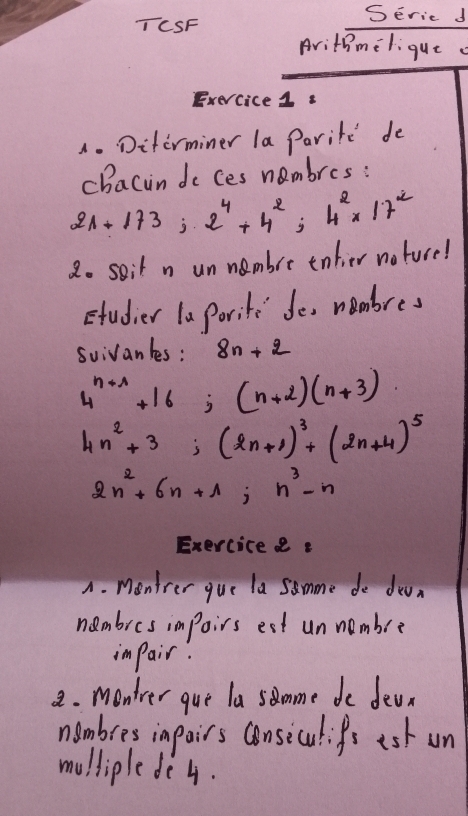 TCSF
Série d
Arithmétique
Exercice 1 :
1. Détérminer la parité de
chacun de ces nombres :
21 + 173 ; 2⁴ + 4² ; 4² × 17²
2. soit n un nombre entier naturel
Etudier la parité des nombres
suivantes : 8n + 2
4ⁿ⁺¹ + 16 ; (n+2)(n+3) .
4n² + 3 ; (2n+1)³ + (2n+4)⁵
2n² + 6n + 1 ; n³ - n
Exercice 2 :
1. Montrer que la somme de deux
nombres impairs est un nombre
impair .
2. Montrer que la somme de deux
nombres impairs consécutifs est un
multiple de 4 .